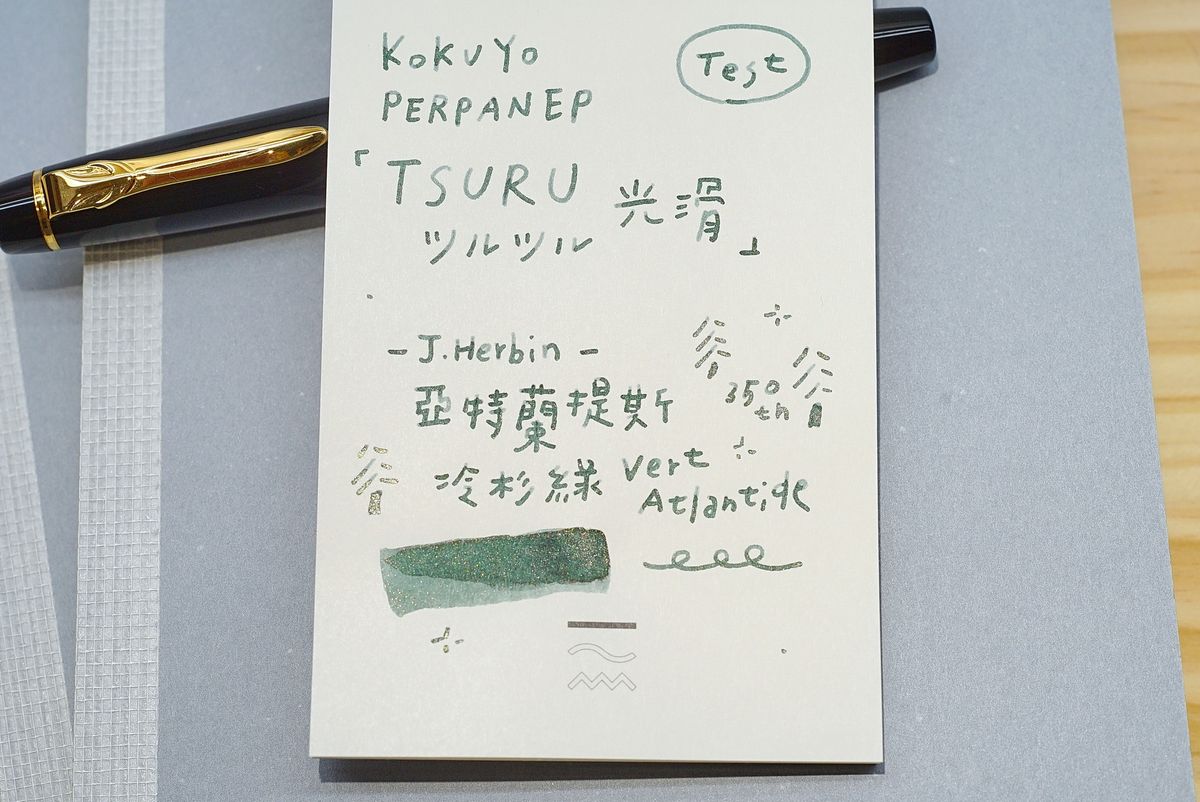 KOKUYO
Test
PERPANEP
「TSURU
ツルツル 光滑」
- J.Herbin -
亞特蘭提斯
350th
冷杉綠 Vert
Atlantide